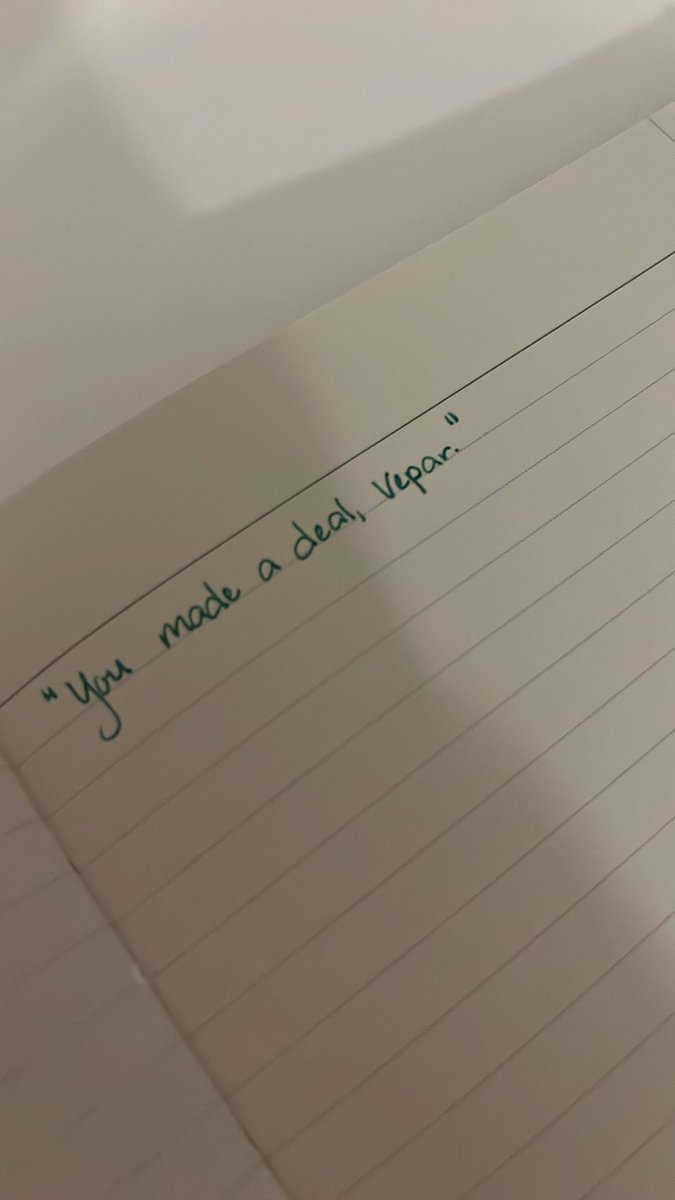 "You made a deal, Vepar."